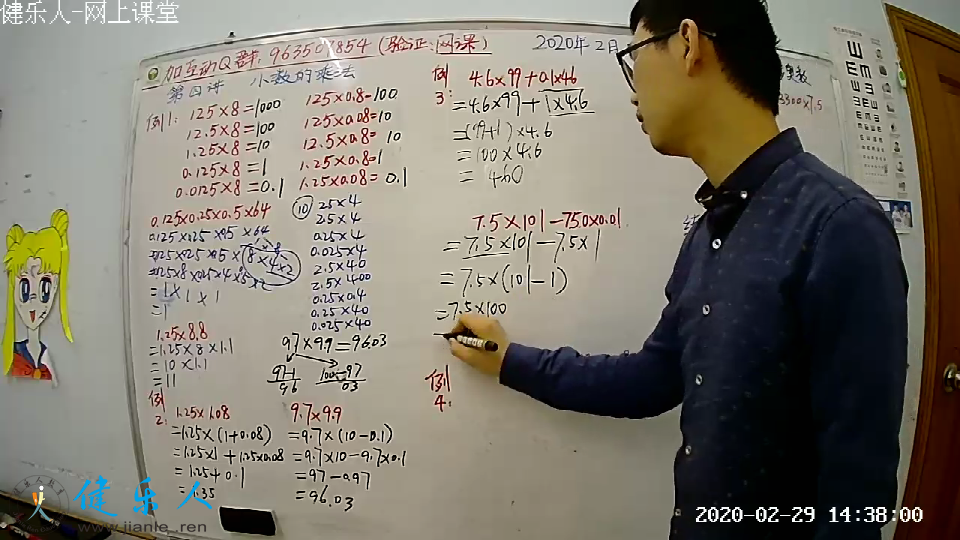 健乐人-网上课堂
加互动Q群: 963507854 (验证:网课)
2020年2月
第四讲 小数的乘法
例1: 125×8=1000
12.5×8=100
1.25×8=10
0.125×8=1
0.0125×8=0.1
125×0.8=100
125×0.08=10
12.5×0.8=10
1.25×0.8=1
1.25×0.08=0.1
0.125×0.25×0.5×64
=1×1×1
=1
1.25×8.8
=1.25×8×1.1
=10×1.1
=11
⑩ 25×4
2.5×4
0.25×4
0.025×4
2.5×40
2.5×400
0.25×0.4
0.25×40
0.025×40
97×99=9603
97-1
96
100-97
03
例2:
1.25×1.08
=1.25×(1+0.08)
=1.25×1+1.25×0.08
=1.25+0.1
=1.35
9.7×9.9
=9.7×(10-0.1)
=9.7×10-9.7×0.1
=97-0.97
=96.03
例3:
4.6×99+0.1×46
=4.6×99+1×4.6
=(99+1)×4.6
=100×4.6
=460
7.5×101-750×0.01
=7.5×101-7.5×1
=7.5×(101-1)
=7.5×100
例4:
3300×7.5
健乐人
www.jianle.ren
2020-02-29 14:38:00